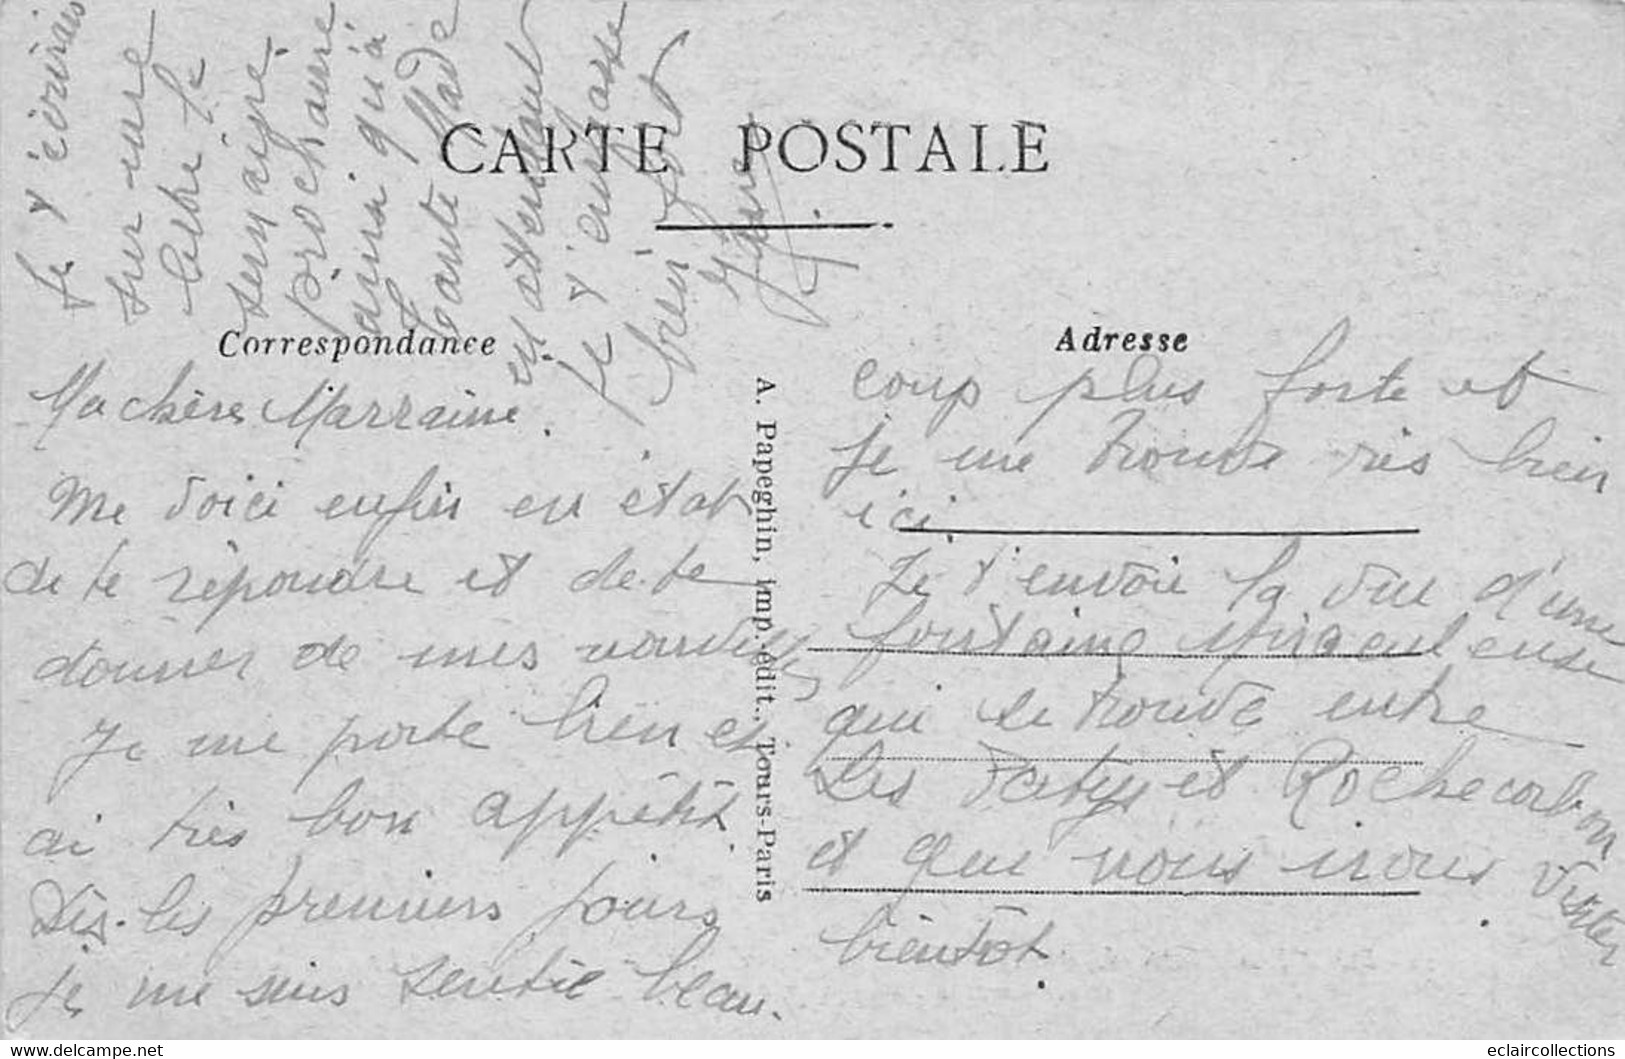 CARTE POSTALE
Correspondance
Adresse
Ma chère Marraine.
Me voici enfin en état
de te répondre et de te
donner de mes nouvelles
Je me porte bien et
ai très bon appétit.
Dès les premiers jours
je me suis sentie beau-
coup plus forte et
je me trouve très bien
ici.
Je t'envoie la vue d'une
fontaine Miraculeuse
qui se trouve entre
les Patys et Rochecorbon
et que nous irons visiter
bientôt.
Je t'écrirais
sur une
lettre la
semaine
prochaine
ainsi qu'à
tante Made
en attendant
je t'embrasse
bien fort
A. Papeghin, imp.-édit., Tours-Paris
eclaircollections